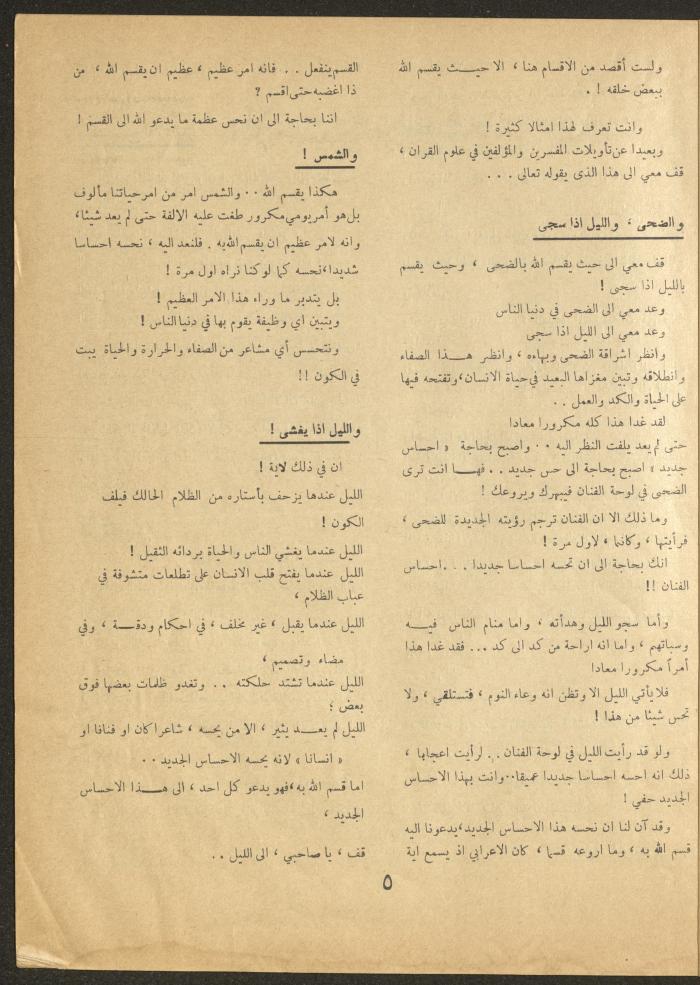 ولست أقصد من الاقسام هنا ، الا حيث يقسم الله
ببعض خلقه ! .
وانت تعرف لهذا امثالا كثيرة !
وبعيدا عن تأويلات المفسرين والمؤلفين في علوم القران ،
قف معي الى هذا الذى يقوله تعالى . . .
والضحى ، والليل اذا سجى
قف معي الى حيث يقسم الله بالضحى ، وحيث يقسم
بالليل اذا سجى !
وعد معي الى الضحى في دنيا الناس
وعد معي الى الليل اذا سجى
وانظر اشراقة الضحى وبهاءه ، وانظر هذا الصفاء
وانطلاقه وتبين مغزاها البعيد في حياة الانسان،وتفتحه فيها
على الحياة والكد والعمل . .
لقد غدا هذا كله مكرورا معادا
حتى لم يعد يلفت النظر اليه . . واصبح بحاجة « احساس
جديد » اصبح بحاجة الى حس جديد . . فها انت ترى
الضحى في لوحة الفنان فيبهرك ويروعك !
وما ذلك الا ان الفنان ترجم رؤيته الجديدة للضحى ،
فرأيتها ، وكانما ، لاول مرة !
انك بحاجة الى ان تحسه احساسا جديدا . . .احساس
الفنان !!
وأما سجو الليل وهدأته ، واما منام الناس فيه
وسباتهم ، واما انه اراحة من كد الى كد ... فقد غدا هذا
أمراً مكرورا معادا
فلا يأتي الليل الا وتظن انه وعاء النوم ، فتستلقي ، ولا
تحس شيئا من هذا !
ولو قد رأيت الليل في لوحة الفنان . . لرأيت اعجابها ،
ذلك انه احسه احساسا جديدا عميقا..وانت بهذا الاحساس
الجديد حفي !
وقد آن لنا ان نحسه هذا الاحساس الجديد،يدعونا اليه
قسم الله به ، وما اروعه قسما ، كان الاعرابي اذ يسمع اية
القسم ينفعل . . فانه امر عظيم ، عظيم ان يقسم الله ، من
ذا اغضبه حتى اقسم ?
اننا بحاجة الى ان نحس عظمة ما يدعو الله الى القسم !
والشمس !
هكذا يقسم الله . . والشمس امر من امر حياتنا مألوف
بل هو أمر يومي مكرور طغت عليه الالفة حتى لم يعد شيئا،
وانه لامر عظيم ان يقسم الله به . فلنعد اليه ، نحسه احساسا
شديدا،نحسه كما لو كنا نراه اول مرة !
بل يتدبر ما وراء هذا الامر العظيم !
ويتبين اي وظيفة يقوم بها في دنيا الناس !
ونتحسس أي مشاعر من الصفاء والحرارة والحياة يبث
في الكون !!
والليل اذا يغشى !
ان في ذلك لاية !
الليل عندها يزحف بأستاره من الظلام الحالك فيلف
الكون !
الليل عندما يغشي الناس والحياة بردائه الثقيل !
الليل عندما يفتح قلب الانسان على تطلعات متشوفة في
عباب الظلام ،
الليل عندما يقبل ، غير مخلف ، في احكام ودقة ، وفي
مضاء وتصميم ،
الليل عندما تشتد حلكته . . وتغدو ظلمات بعضها فوق
بعض ؛
الليل لم يعد يثير ، الا من يحسه ، شاعرا كان او فنانا او
« انسانا » لانه يحسه الاحساس الجديد . .
اما قسم الله به،فهو يدعو كل احد ، الى هذا الاحساس
الجديد ،
قف ، يا صاحبي ، الى الليل . .
٥